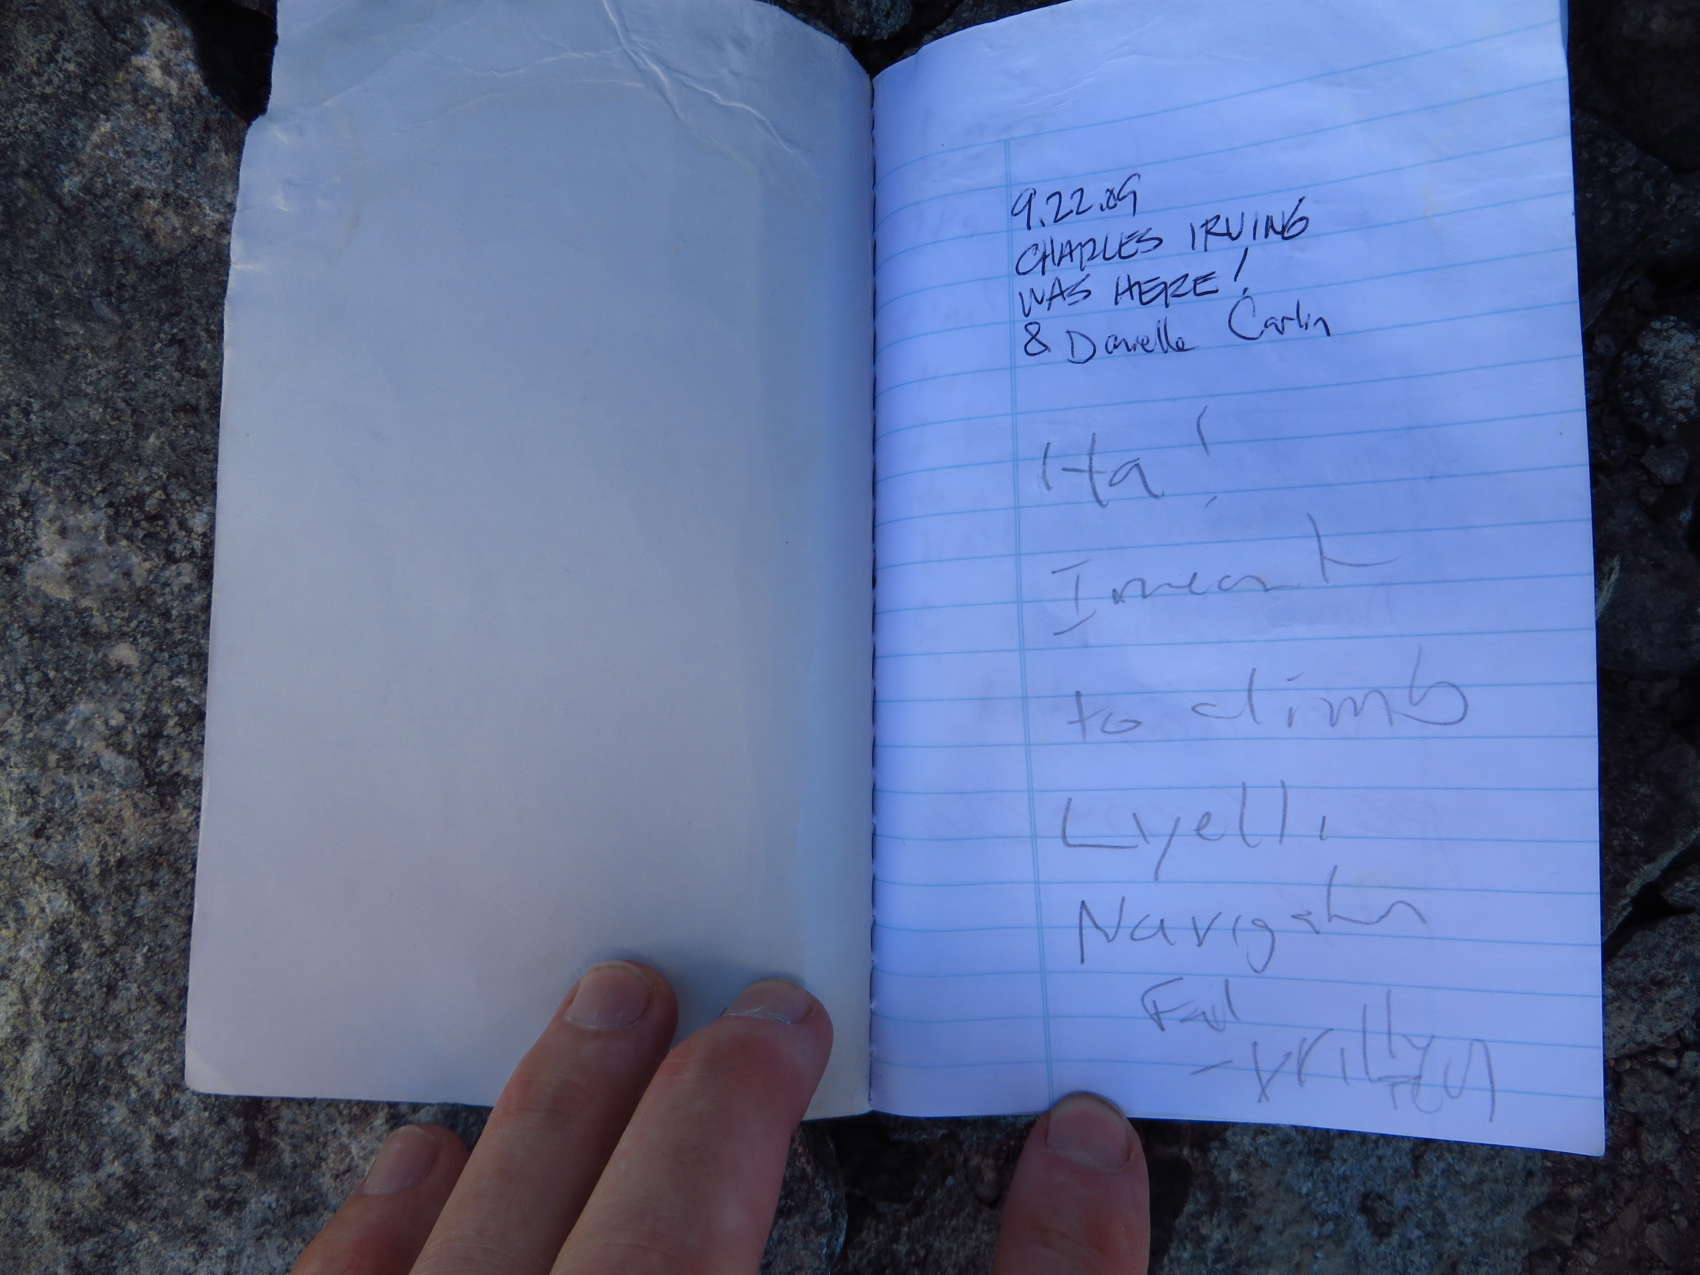 9.22.09
CHARLES IRVING
WAS HERE!
& Danielle Carlin
Ha!
I meant
to climb
Lyell!
Navigation
Fail